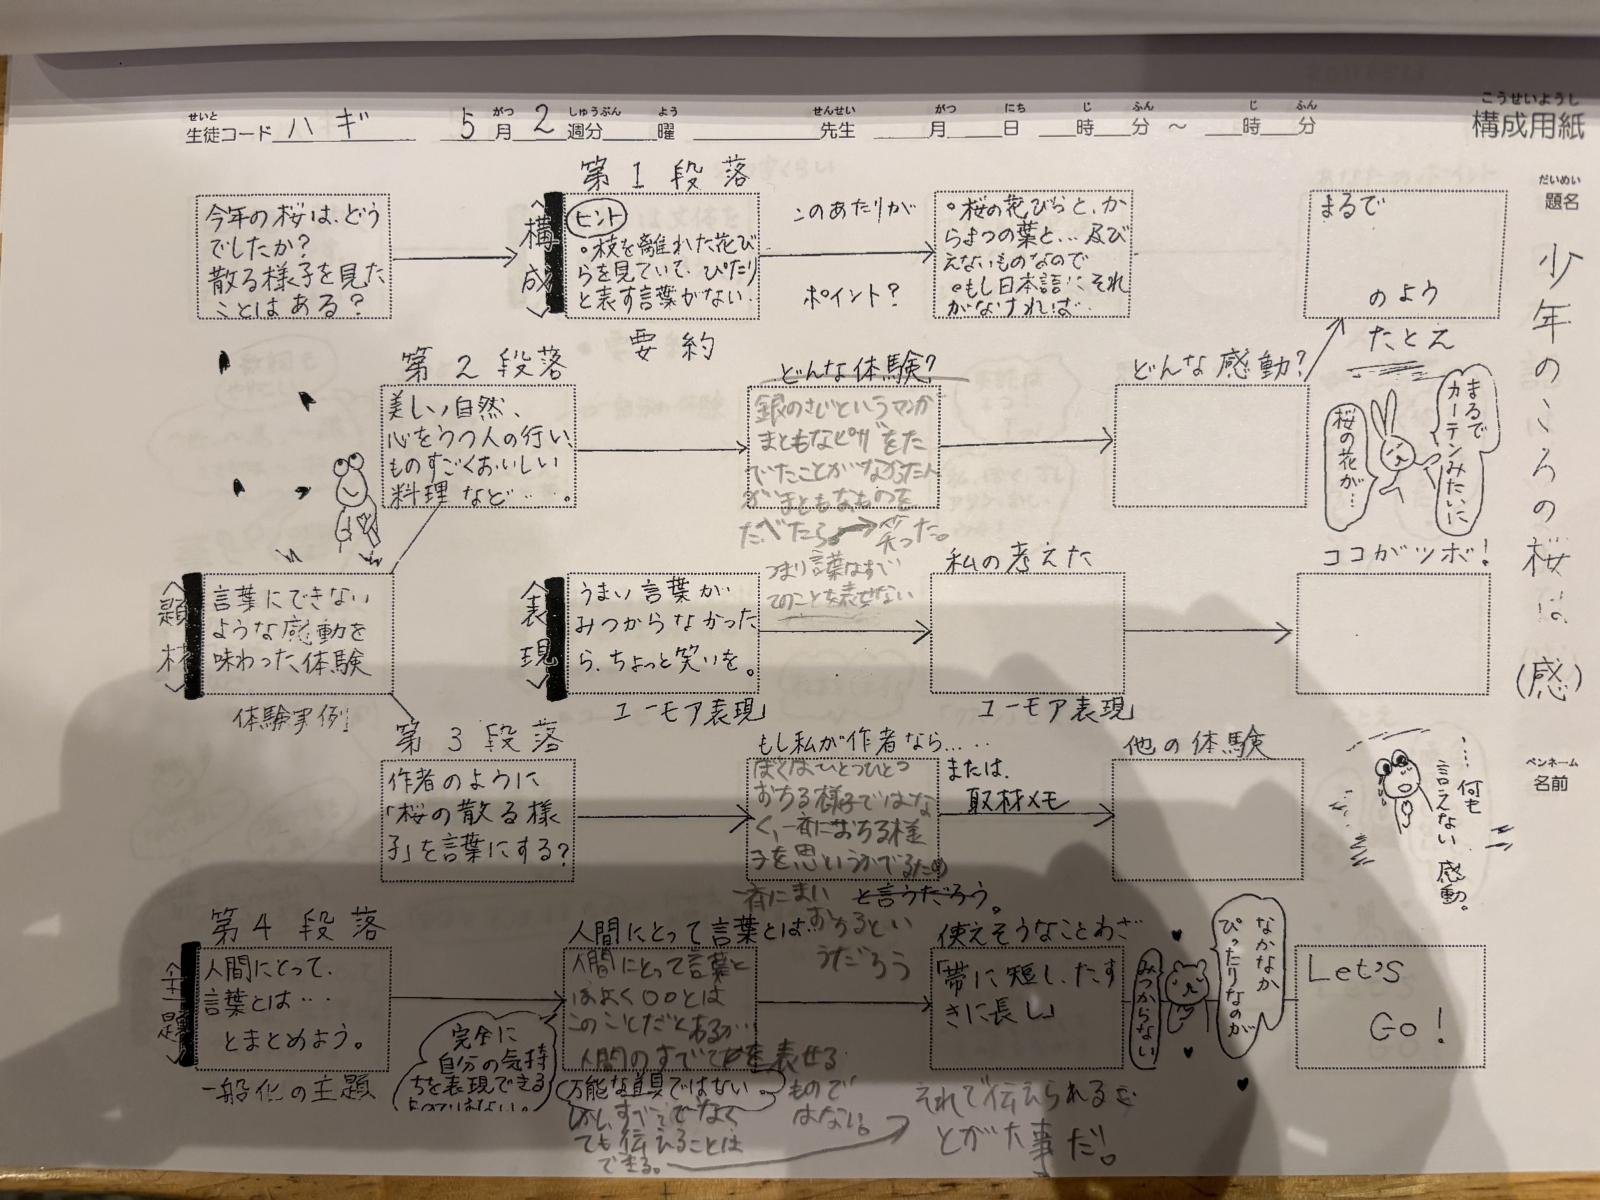 こうせいようし
構成用紙
せいと がつ しゅうぶん よう せんせい がつ にち じ ふん じ ふん
生徒コード ハギ 5月2週分 曜 先生 月 日 時 分 ～ 時 分
だいめい
題名
少年のころの桜は(感)
ペンネーム
名前
今年の桜は、どう
でしたか？
散る様子を見た
ことはある？
第1段落
＜構成＞
ヒント
・枝を離れた花び
らを見ていて、ぴたり
と表す言葉がない。
要約
このあたりが
ポイント？
・桜の花びらと、か
らまつの葉と…及び
えないものなので
・もし日本語にそれ
がなければ…
まるで
のよう
たとえ
第2段落
美しい自然、
心をうつ人の行い、
ものすごくおいしい
料理など…。
どんな体験？
銀のさじというマンガ
まともなピザをた
べたことがなかった人
がまともなものを
たべたら→笑った。
つまり言葉はすべ
てのことを表せない
どんな感動？
まるで
カーテンみたいに
桜の花が…
＜題材＞
言葉にできない
ような感動を
味わった体験
体験実例
＜表現＞
うまい言葉が
みつからなかった
ら、ちょっと笑いを。
ユーモア表現
私の考えた
ユーモア表現
ココがツボ！
第3段落
作者のように
「桜の散る様
子」を言葉にする？
もし私が作者なら……
ぼくはひとつひとつ
おちる様子ではな
く、一斉におちる様
子を思
一斉にまい
おちるとい
うだろう
と言うだろう。
または、
取材メモ
他の体験
…何も
言えない
感動。
第4段落
＜主題＞
人間にとって、
言葉とは…
とまとめよう。
一般化の主題
完全に
自分の気持
ちを表現できる
ものではない。
人間にとって言葉とは
人間にとって言葉と
はよく〇〇とは
このことだとあるが…
人間のすべてを表せる
ものでは
はない。
万能な道具ではない。
しかし、すべてでなく
ても伝えることは
できる。
それで伝えられるこ
とが大事だ！
使えそうなことわざ
「帯に短し、たす
きに長し」
なかなか
ぴったりなのが
みつからない
Let's
Go！